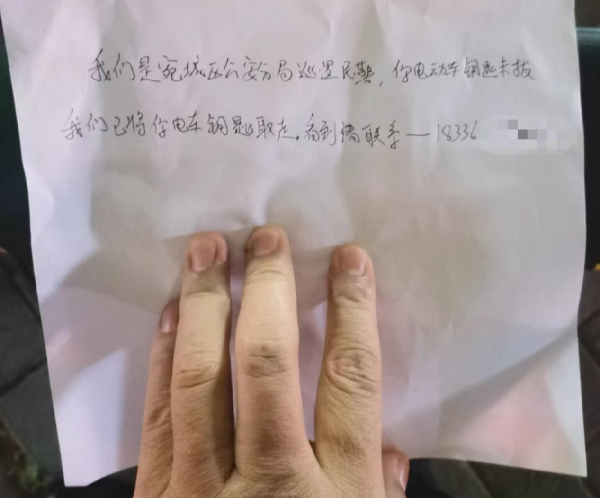 我们是宛城区公安分局巡逻民警，你电动车钥匙未拔
我们已将你电车钥匙取走。看到请联系—18336